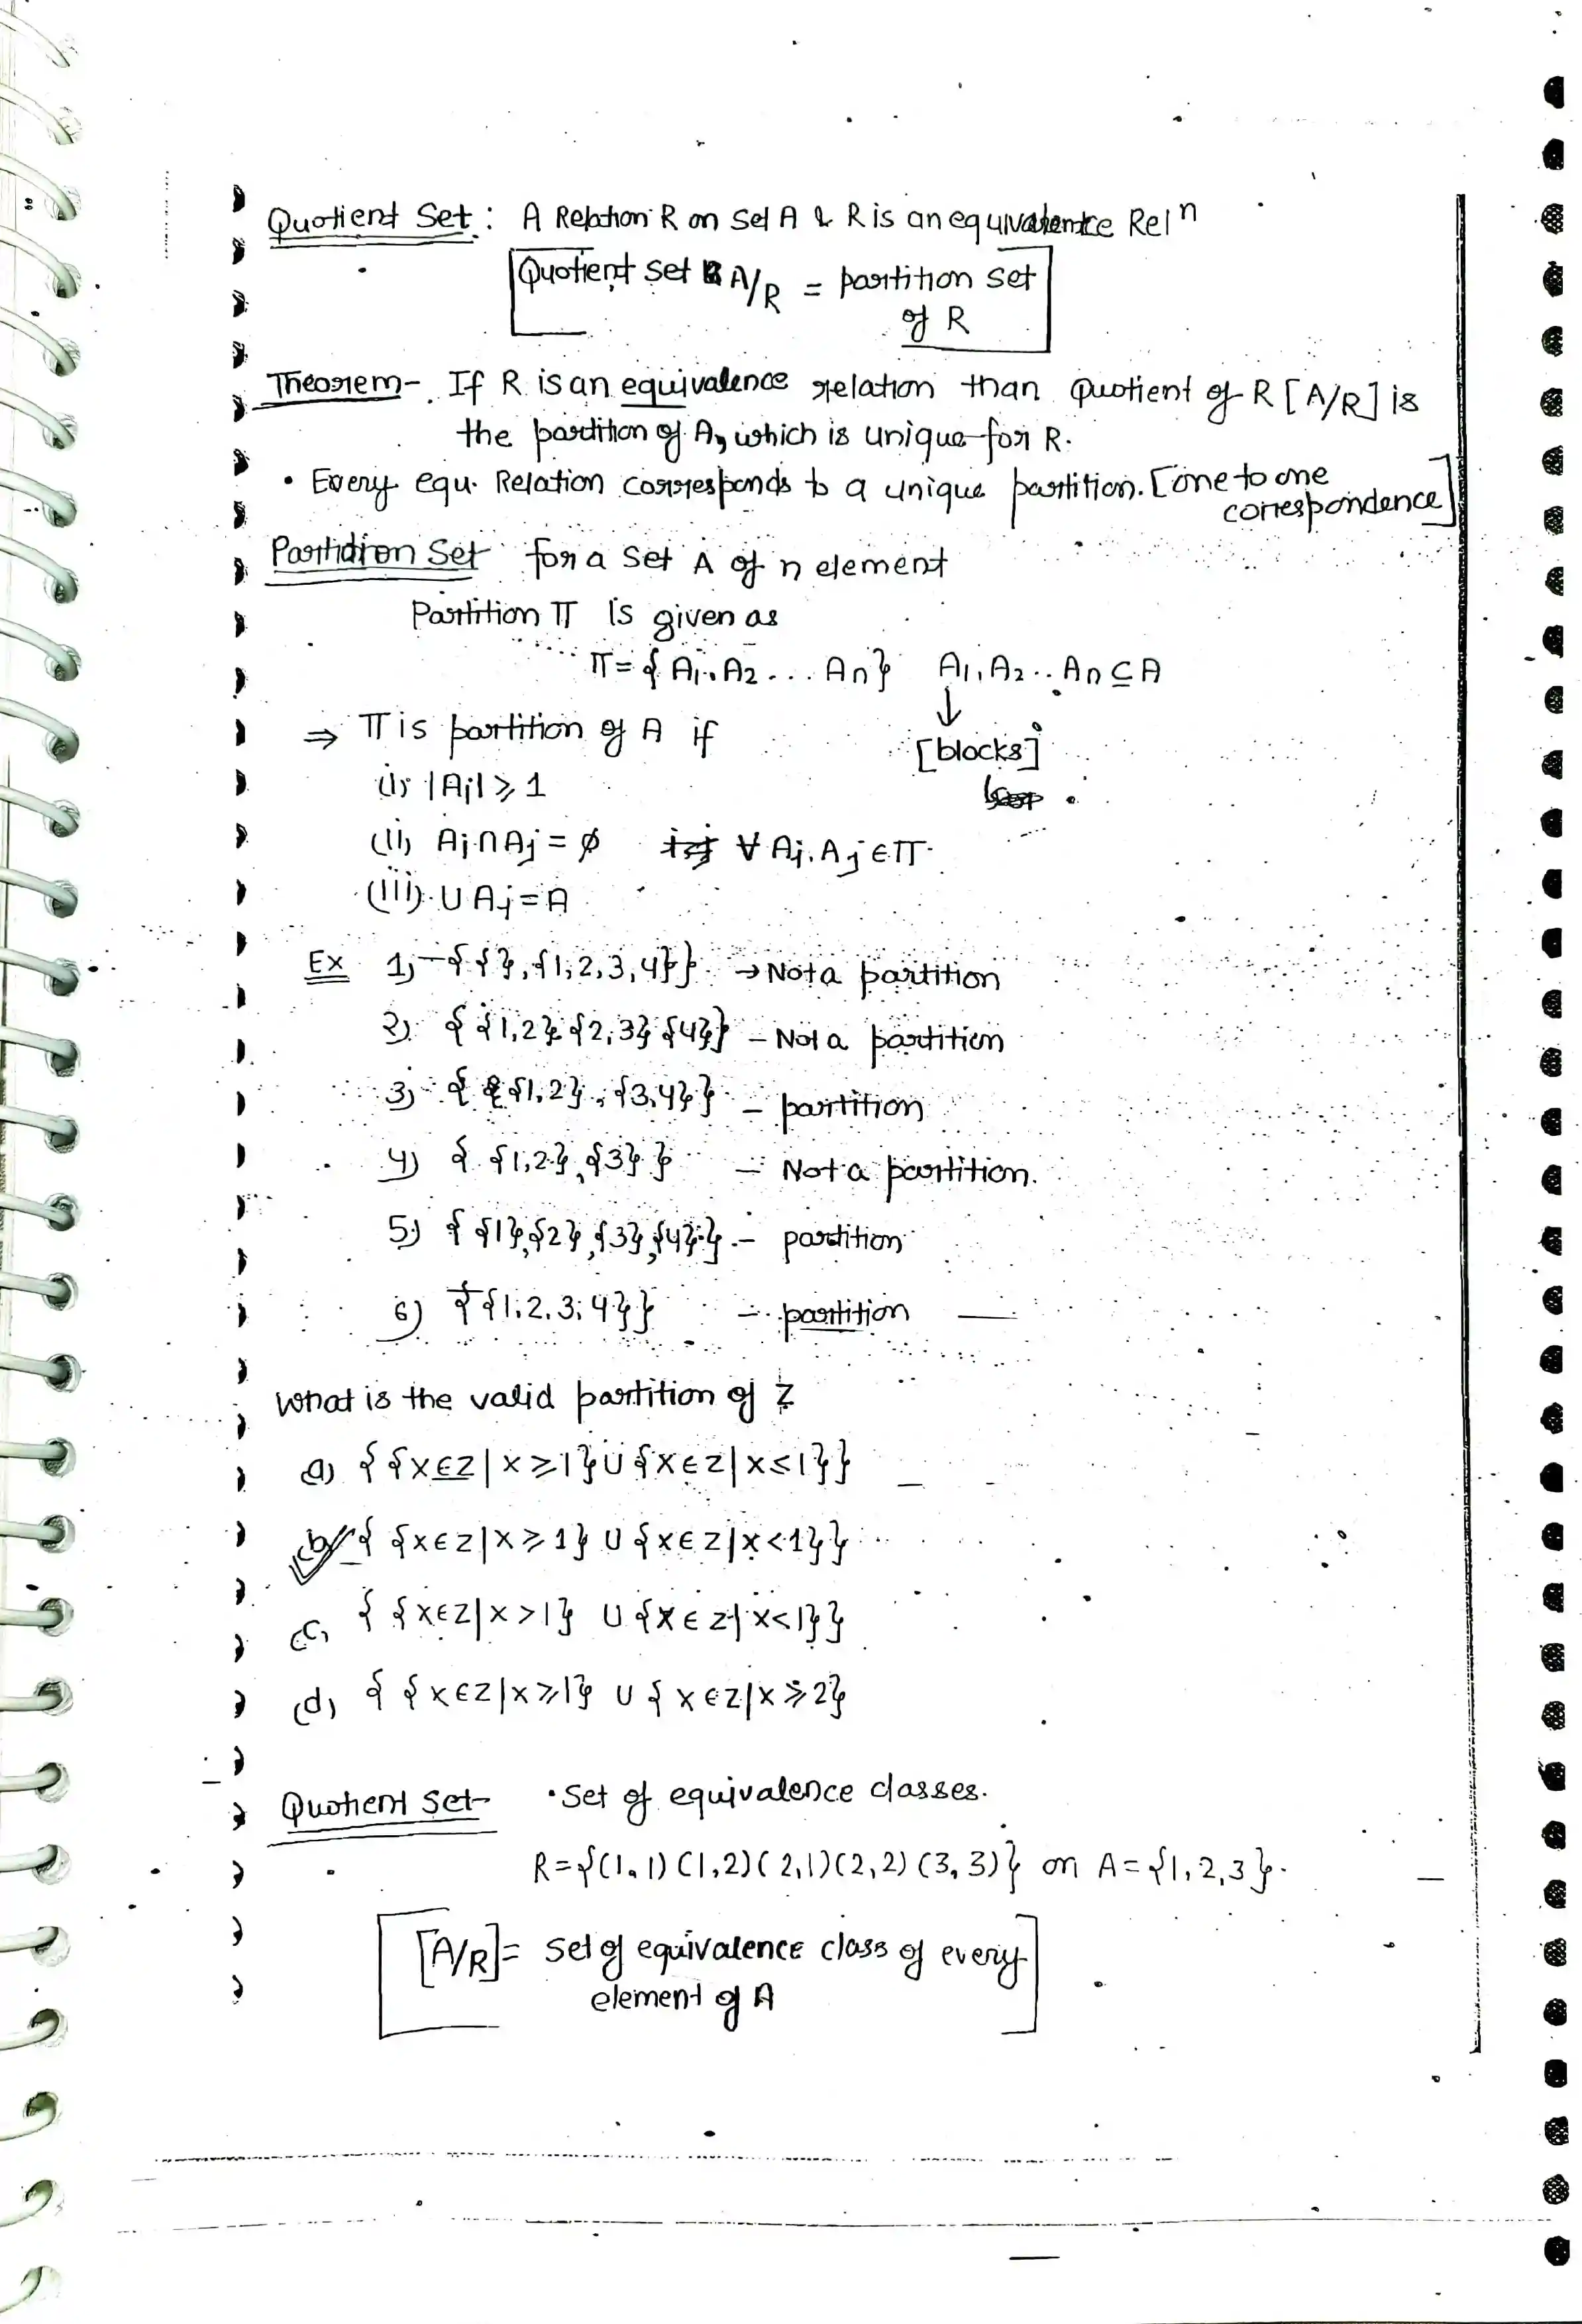 Quotient Set : A Relation R on Set A & R is an equivalentce Relⁿ
Quotient set A/R = partition set
of R
Theorem - If R is an equivalence relation than Quotient of R [A/R] is
the partition of A, which is unique for R.
• Every equ. Relation corresponds to a unique partition. [one to one
correspondence]
Partition Set for a set A of n element
Partition π is given as
π = { A₁, A₂ ... An} A₁, A₂ .. An ⊆ A
↓
⇒ π is partition of A if [blocks]
(i) |Ai| ≥ 1
(ii) Ai ∩ Aj = ∅ ∀ Ai, Aj ∈ π
(iii) ∪ Ai = A
Ex 1) { { }, {1, 2, 3, 4}} → Not a partition
2) { {1,2} {2,3} {4}} - Not a partition
3) { {1,2}, {3,4}} - partition
4) { {1,2}, {3} } - Not a partition.
5) { {1}, {2}, {3}, {4} } - partition
6) { {1, 2, 3, 4}} - partition
What is the valid partition of Z
a) { {x∈Z | x ≥ 1} ∪ {x∈Z | x ≤ 1}}
(b) { {x∈Z | x ≥ 1} ∪ {x∈Z | x < 1}}
(c) { {x∈Z | x > 1} ∪ {x∈Z | x < 1}}
(d) { {x∈Z | x ≥ 1} ∪ {x∈Z | x ≥ 2}
Quotient Set - • Set of equivalence classes.
R = {(1, 1) (1,2) (2,1) (2,2) (3, 3)} on A = {1, 2, 3}.
[A/R] = Set of equivalence class of every
element of A